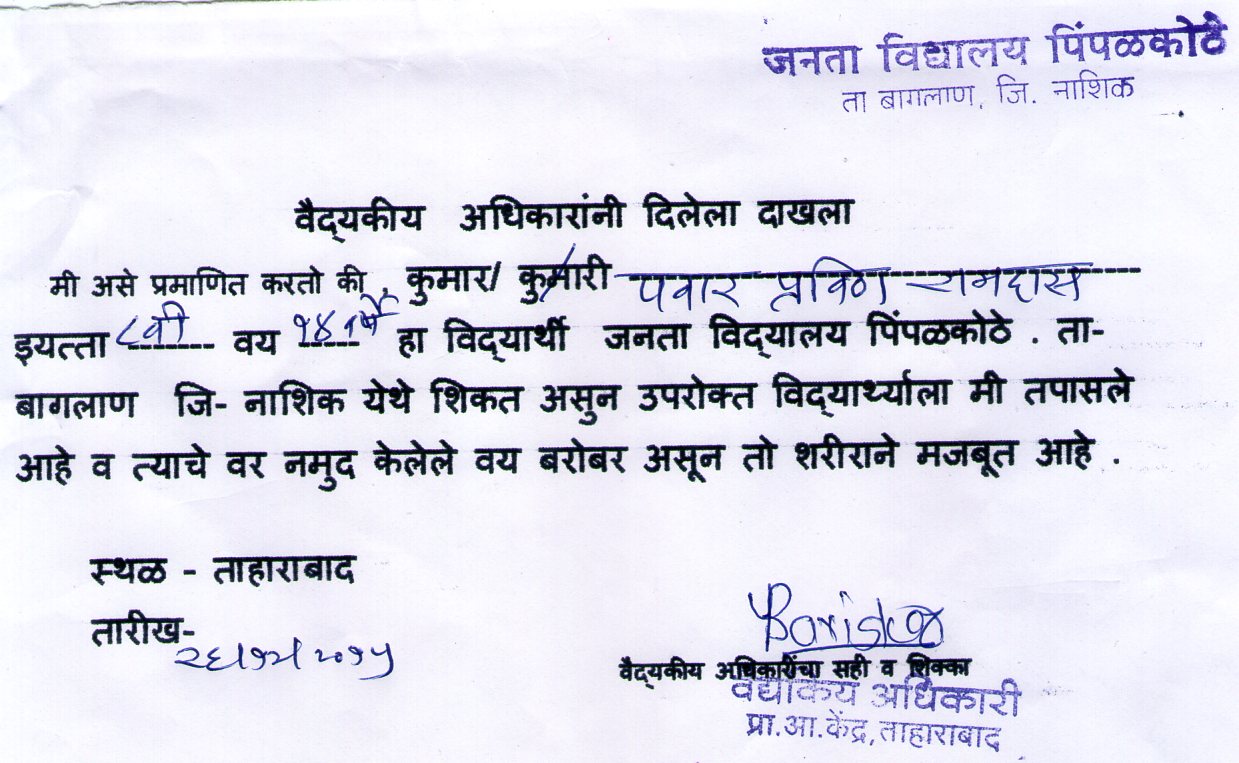 जनता विद्यालय पिंपळकोठे
ता बागलाण, जि. नाशिक
वैद्यकीय अधिकारांनी दिलेला दाखला
मी असे प्रमाणित करतो की , कुमार/ कुमारी पवार प्रविण रामदास
इयत्ता ८वी वय १४ वर्षे हा विद्यार्थी जनता विद्यालय पिंपळकोठे . ता-
बागलाण जि- नाशिक येथे शिकत असुन उपरोक्त विद्यार्थ्याला मी तपासले
आहे व त्याचे वर नमुद केलेले वय बरोबर असून तो शरीराने मजबूत आहे .
स्थळ - ताहाराबाद
तारीख-
वैद्यकीय अधिकारींचा सही व शिक्का
वैद्यकिय अधिकारी
प्रा.आ.केंद्र,ताहाराबाद